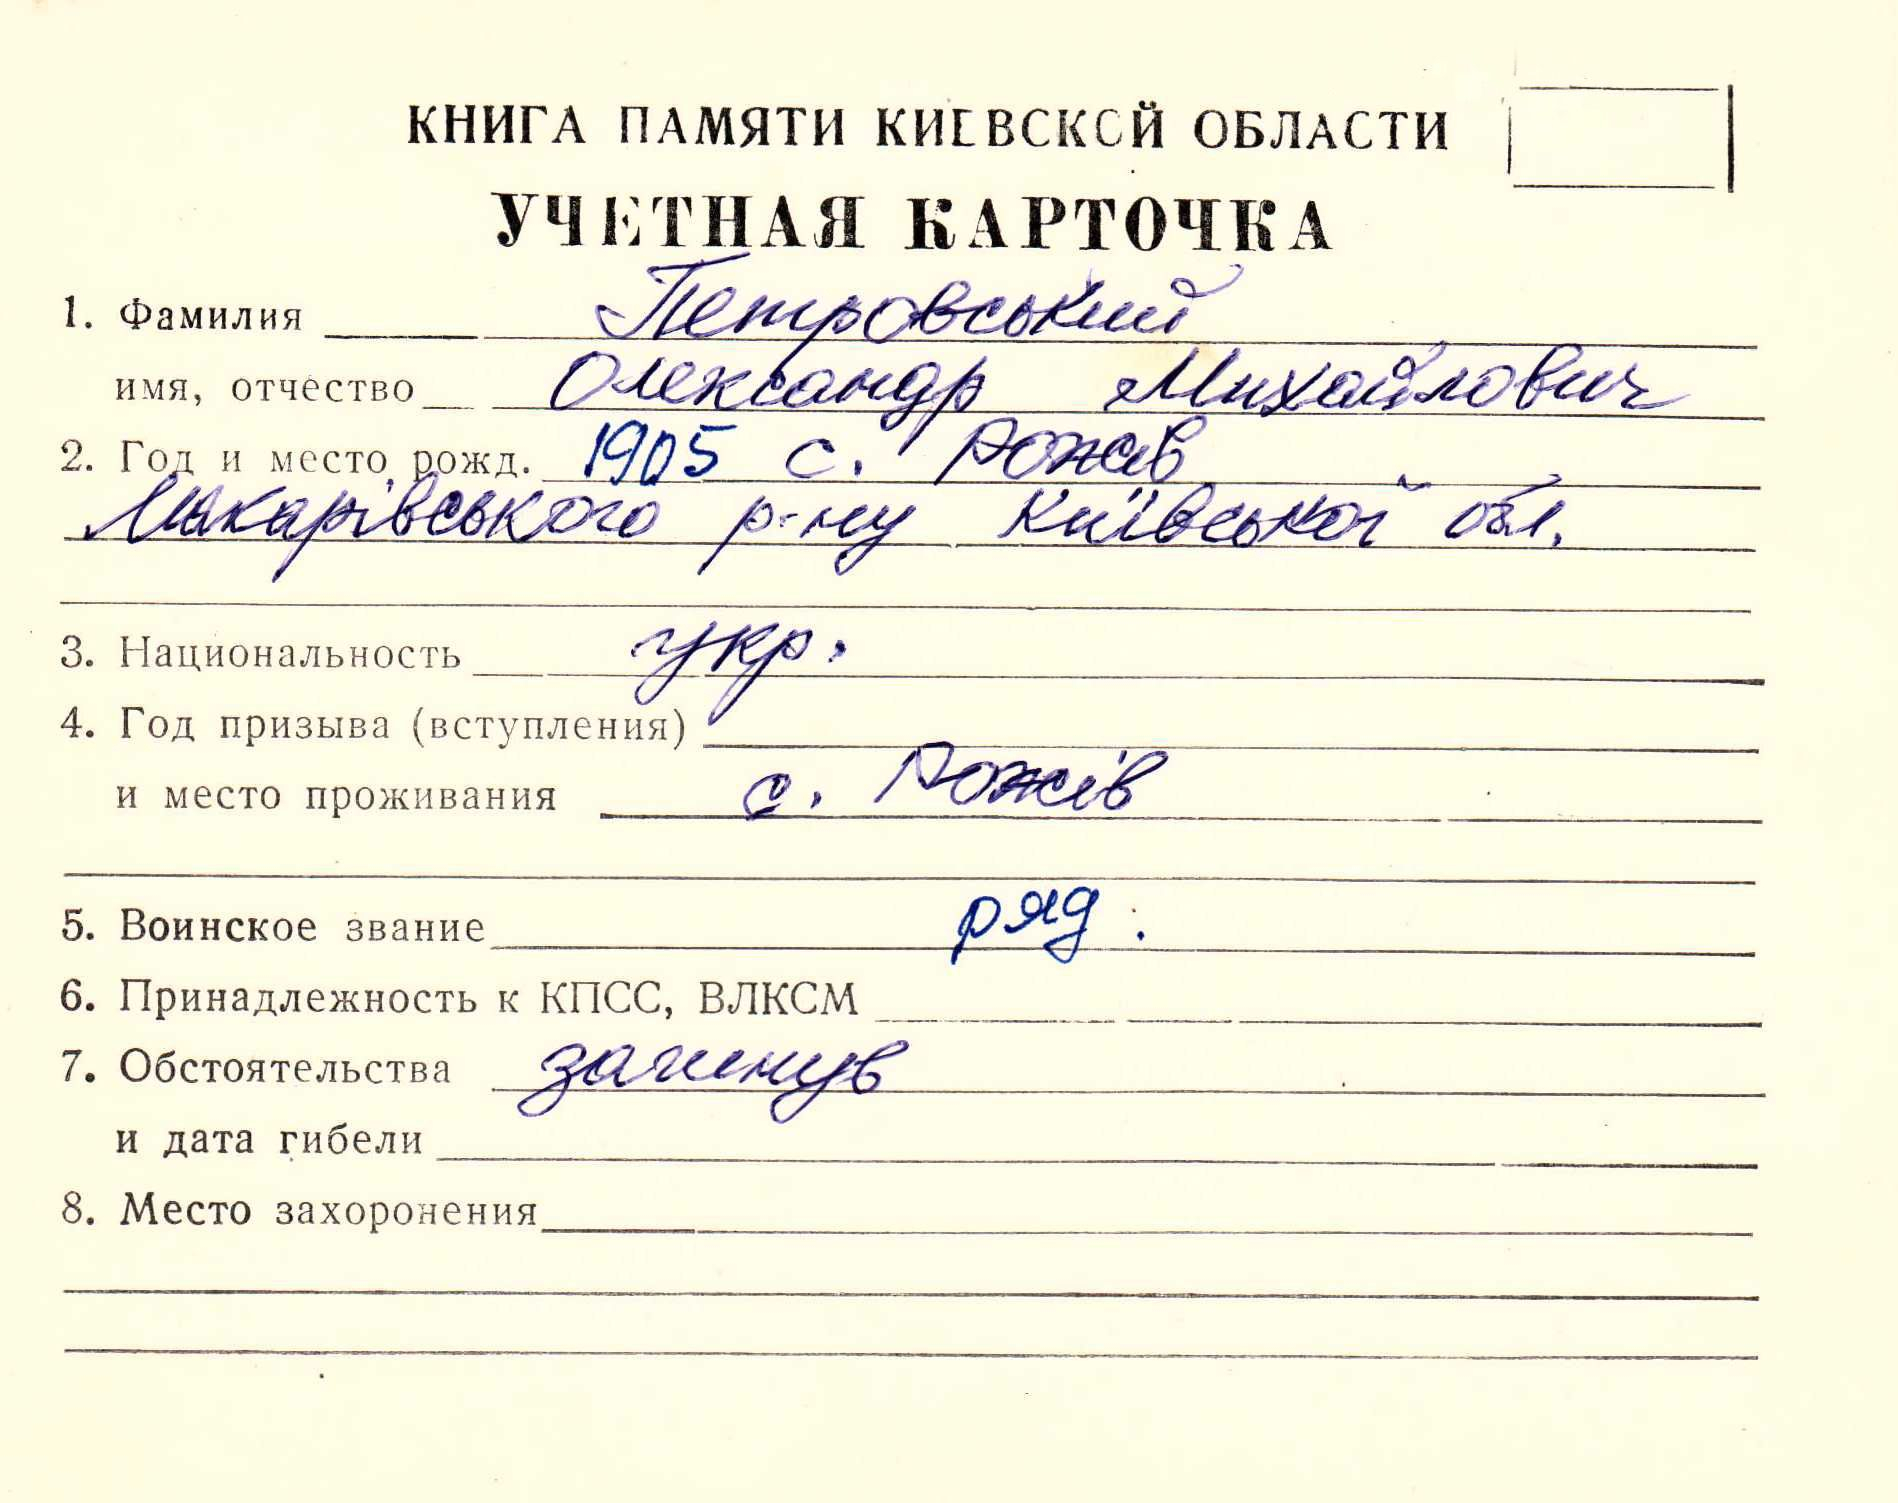 КНИГА ПАМЯТИ КИЕВСКОЙ ОБЛАСТИ
УЧЕТНАЯ КАРТОЧКА
1. Фамилия Петровський
имя, отчество Олександр Михайлович
2. Год и место рожд. 1905 с. Рожів
Макарівського р-ну Київської обл.
3. Национальность укр.
4. Год призыва (вступления)
и место проживания с. Рожів
5. Воинское звание ряд.
6. Принадлежность к КПСС, ВЛКСМ
7. Обстоятельства загинув
и дата гибели
8. Место захоронения